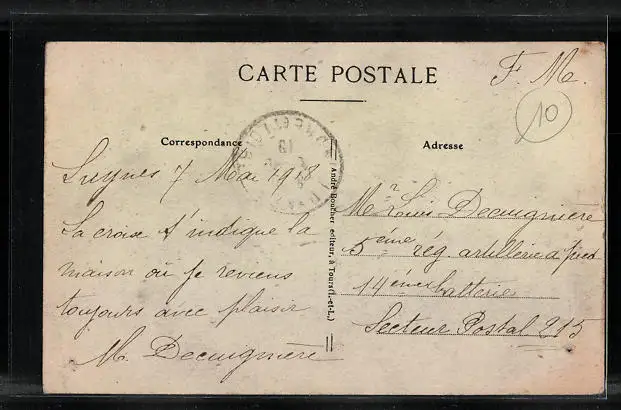 CARTE POSTALE
F. M.
10
Correspondance
Adresse
Luynes 7 Mai 1918
La croix t'indique la
maison où je reviens
toujours avec plaisir
M. Decuignière
André Boucher editeur, à Tours (I.-et-L.)
Mr Louis Decuignière
5ème rég. artillerie à pied
14ème batterie
Secteur Postal 215